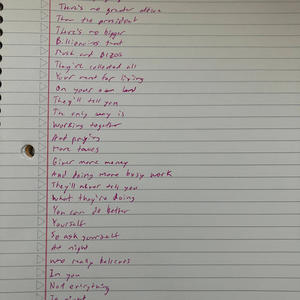 There's no greater advice
Than the president
There's no bigger
Billionaires than
Musk and Bezos
They're collected all
Your rent for living
On your own land
They'll tell you
The only way is
Working together
And paying
More taxes
Give more money
And doing more busy work
They'll never tell you
What they're doing
You can do better
Yourself
So ask yourself
At night
who really believes
In you
Not everything